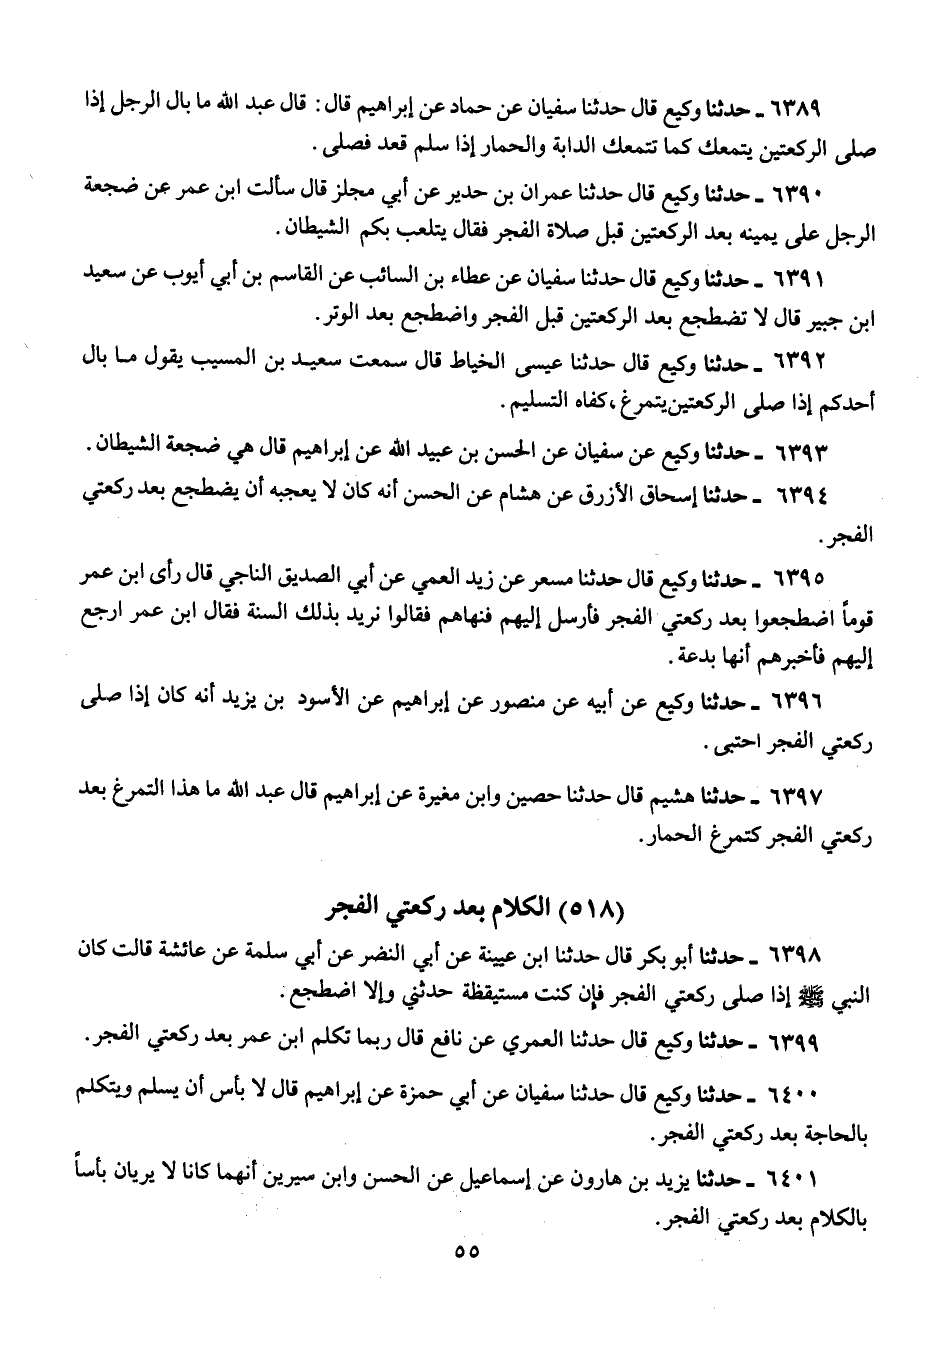 ٦٣٨٩ ـ حدثنا وكيع قال حدثنا سفيان عن حماد عن إبراهيم قال: قال عبد الله ما بال الرجل إذا
صلى الركعتين يتمعك كما تتمعك الدابة والحمار إذا سلم قعد فصلى.
٦٣٩٠ ـ حدثنا وكيع قال حدثنا عمران بن حدير عن أبي مجلز قال سألت ابن عمر عن ضجعة
الرجل على يمينه بعد الركعتين قبل صلاة الفجر فقال يتلعب بكم الشيطان.
٦٣٩١ ـ حدثنا وكيع قال حدثنا سفيان عن عطاء بن السائب عن القاسم بن أبي أيوب عن سعيد
ابن جبير قال لا تضطجع بعد الركعتين قبل الفجر واضطجع بعد الوتر.
٦٣٩٢ ـ حدثنا وكيع قال حدثنا عيسى الخياط قال سمعت سعيد بن المسيب يقول ما بال
أحدكم إذا صلى الركعتين يتمرغ، كفاه التسليم.
٦٣٩٣ ـ حدثنا وكيع عن سفيان عن الحسن بن عبيد الله عن إبراهيم قال هي ضجعة الشيطان.
٦٣٩٤ ـ حدثنا إسحاق الأزرق عن هشام عن الحسن أنه كان لا يعجبه أن يضطجع بعد ركعتي
الفجر.
٦٣٩٥ ـ حدثنا وكيع قال حدثنا مسعر عن زيد العمي عن أبي الصديق الناجي قال رأى ابن عمر
قوماً اضطجعوا بعد ركعتي الفجر فأرسل إليهم فنهاهم فقالوا نريد بذلك السنة فقال ابن عمر ارجع
إليهم فأخبرهم أنها بدعة.
٦٣٩٦ ـ حدثنا وكيع عن أبيه عن منصور عن إبراهيم عن الأسود بن يزيد أنه كان إذا صلى
ركعتي الفجر احتبى.
٦٣٩٧ ـ حدثنا هشيم قال حدثنا حصين وابن مغيرة عن إبراهيم قال عبد الله ما هذا التمرغ بعد
ركعتي الفجر كتمرغ الحمار.
(٥١٨) الكلام بعد ركعتي الفجر
٦٣٩٨ ـ حدثنا أبو بكر قال حدثنا ابن عيينة عن أبي النضر عن أبي سلمة عن عائشة قالت كان
النبي ﷺ إذا صلى ركعتي الفجر فإن كنت مستيقظة حدثني وإلا اضطجع.
٦٣٩٩ ـ حدثنا وكيع قال حدثنا العمري عن نافع قال ربما تكلم ابن عمر بعد ركعتي الفجر.
٦٤٠٠ ـ حدثنا وكيع قال حدثنا سفيان عن أبي حمزة عن إبراهيم قال لا بأس أن يسلم ويتكلم
بالحاجة بعد ركعتي الفجر.
٦٤٠١ ـ حدثنا يزيد بن هارون عن إسماعيل عن الحسن وابن سيرين أنهما كانا لا يريان بأساً
بالكلام بعد ركعتي الفجر.
٥٥